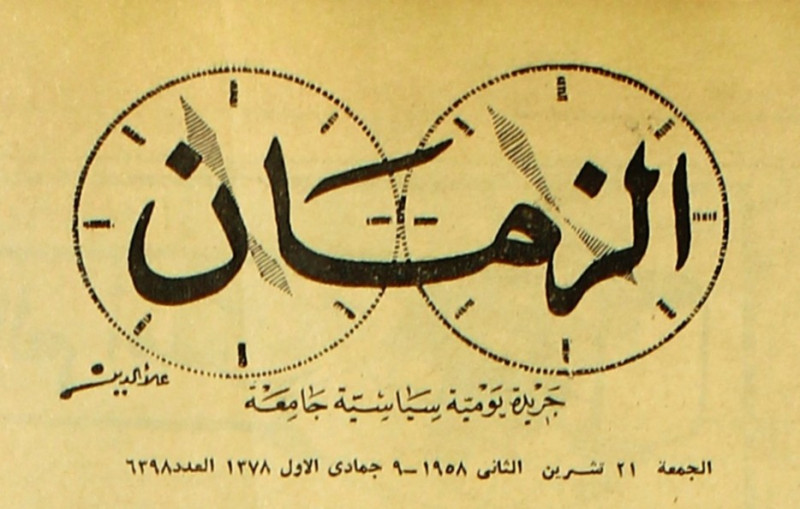 الزمان
علاء الدين
جَريْدة يَوْميّة سِيَاسْيّة جَامِعَة
الجمعة ٢١ تشرين الثانى ١٩٥٨ــ٩ جمادى الاول ١٣٧٨ العدد٦٣٩٨